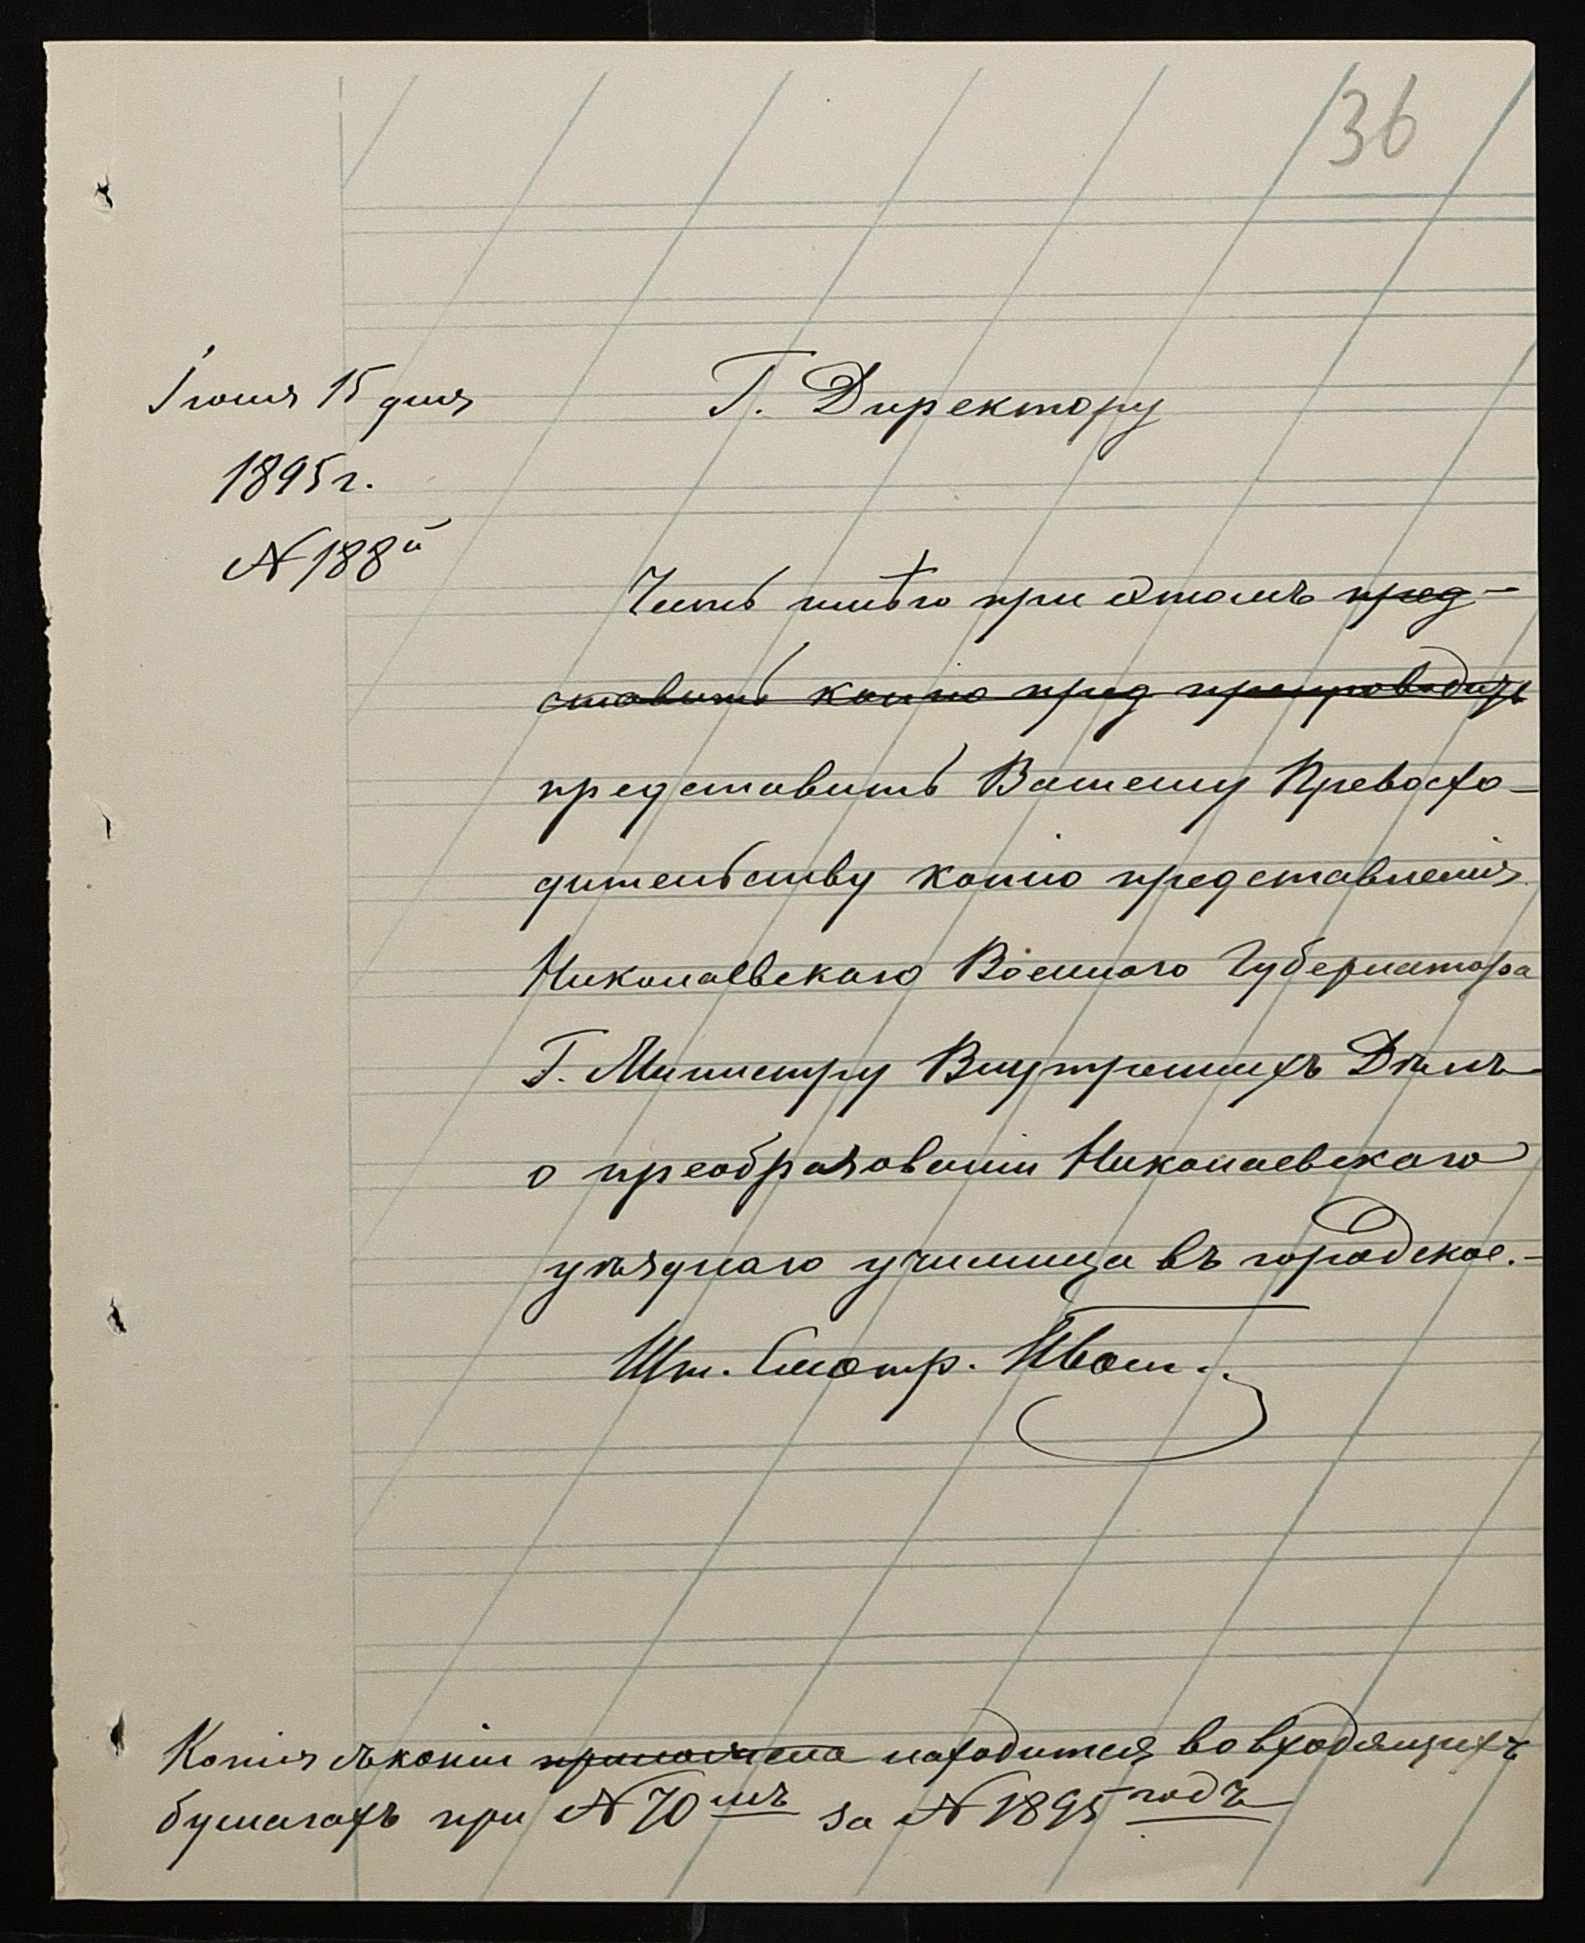 36
Іюня 15 дня
1895 г.
№ 188й
Г. Директору
Честь имѣю при этомъ пред-
ставить копию пред препроводить
представить Вашему Превосхо-
дительству копию представления
Николаевскаго Военнаго Губернатора
Г. Министру Внутреннихъ Дѣлъ
о преобразованіи Николаевскаго
уѣзднаго училища въ городское.-
Шт. Смотр.
Копія съ копіи приложена находится во входящихъ
бумагахъ при № 70мъ за № 1895 годъ